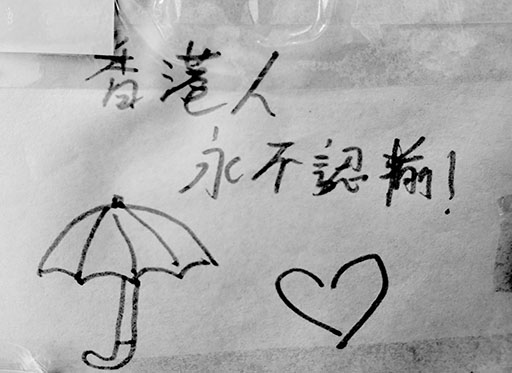 香港人
永不認輸!